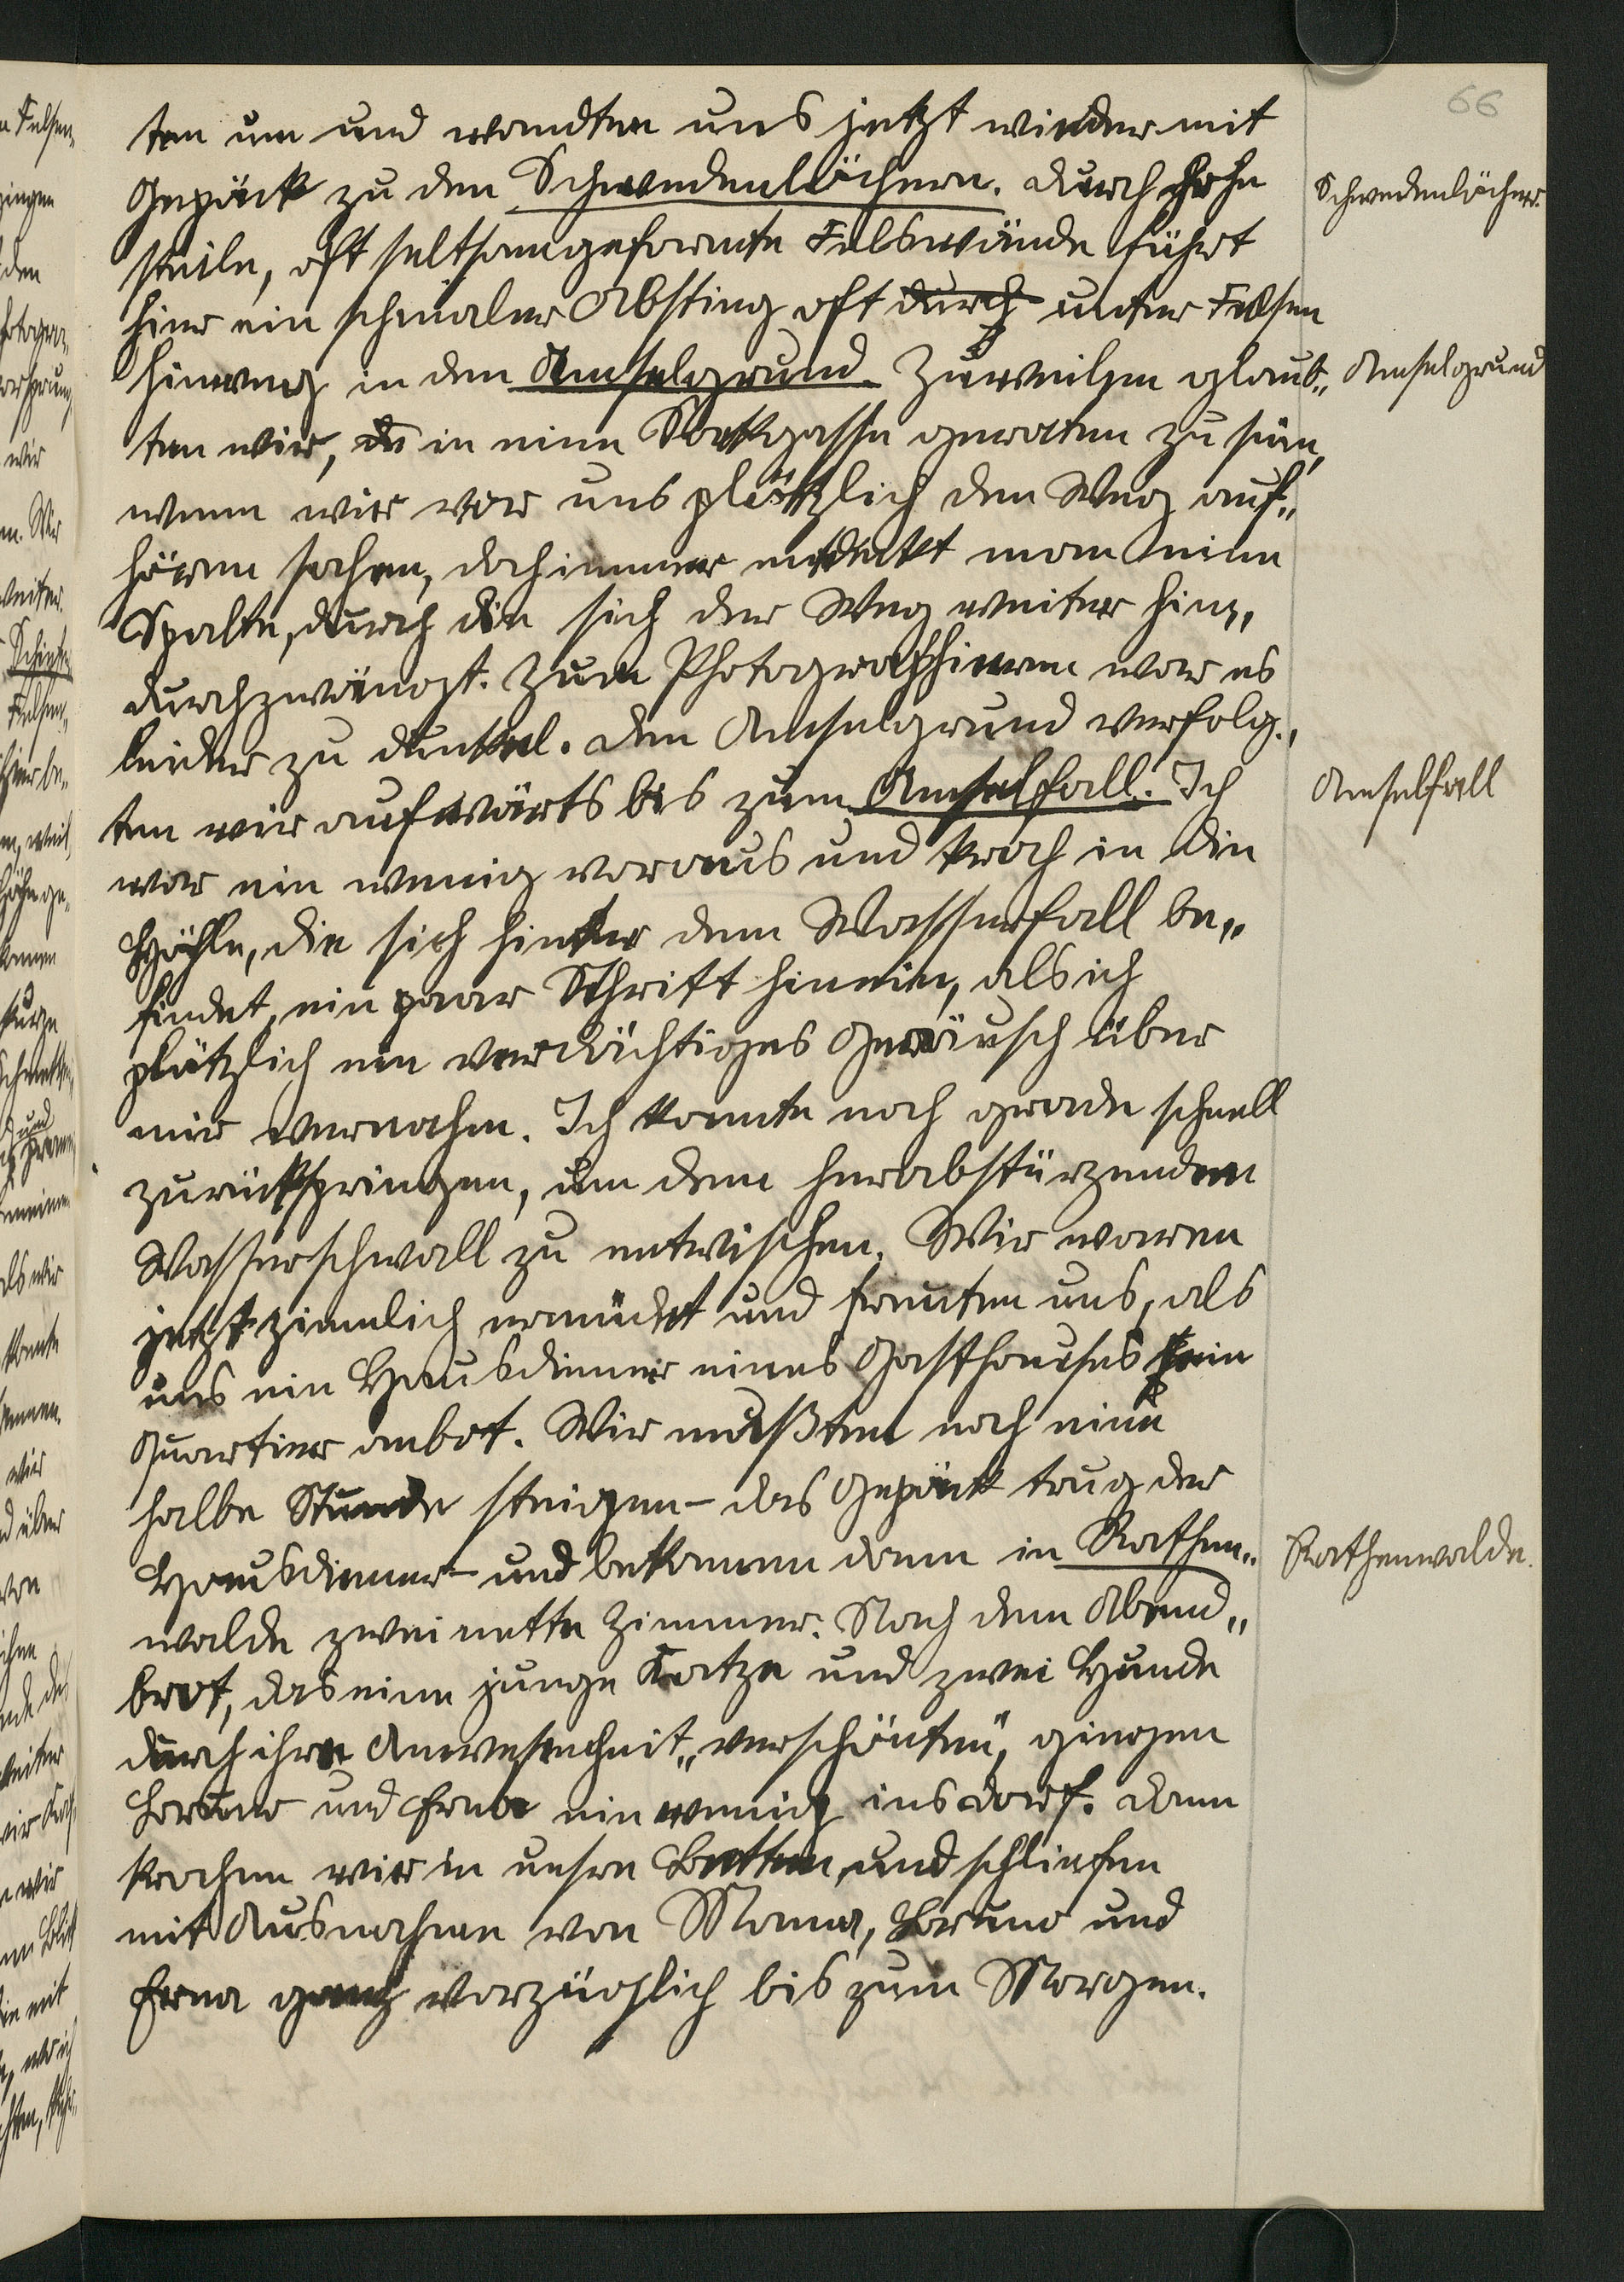 66
ten um und wandten uns jetzt wieder mit
Gepäck zu den Schwedenlöchern. Durch hohe
Schwedenlöcher.
steile, oft seltsam geformte Felswände führt
hier ein schmaler Abstieg oft durch unter Felsen
hinweg in den Amselgrund. Zuweilen glaub„
Amselgrund
ten wir, in eine Sackgasse geraten zu sein,
wenn wir vor uns plötzlich den Weg auf„
hören sahen, doch immer entdeckt man eine
Spalte, durch die sich der Weg weiter hin„
durchzwängt. Zum Photographieren war es
leider zu dunkel. Den Amselgrund verfolg„
ten wir aufwärts bis zum Amselfall. Ich
Amselfall
war ein wenig voraus und kroch in die
Höhle, die sich hinter dem Wasserfall be„
findet, ein paar Schritt hinein, als ich
plötzlich ein verdächtiges Geräusch über
mir vernahm. Ich konnte noch gerade schnell
zurückspringen, um dem herabstürzenden
Wasserschwall zu entwischen. Wir waren
jetzt ziemlich ermüdet und freuten uns, als
uns ein Hausdiener eines Gasthauses sein
Quartier anbot. Wir mußten noch eine
halbe Stunde steigen – das Gepäck trug der
Hausdiener – und bekamen dann in Rathen„
Rathenwalde.
walde zwei nette Zimmer. Nach dem Abend„
brot, das eine junge Katze und zwei Hunde
durch ihre Anwesenheit „verschönten“, gingen
Bruno und Erna ein wenig ins Dorf. Dann
krochen wir in unsre Betten und schliefen
mit Ausnahme von Mama, Bruno und
Erna ganz vorzüglich bis zum Morgen.